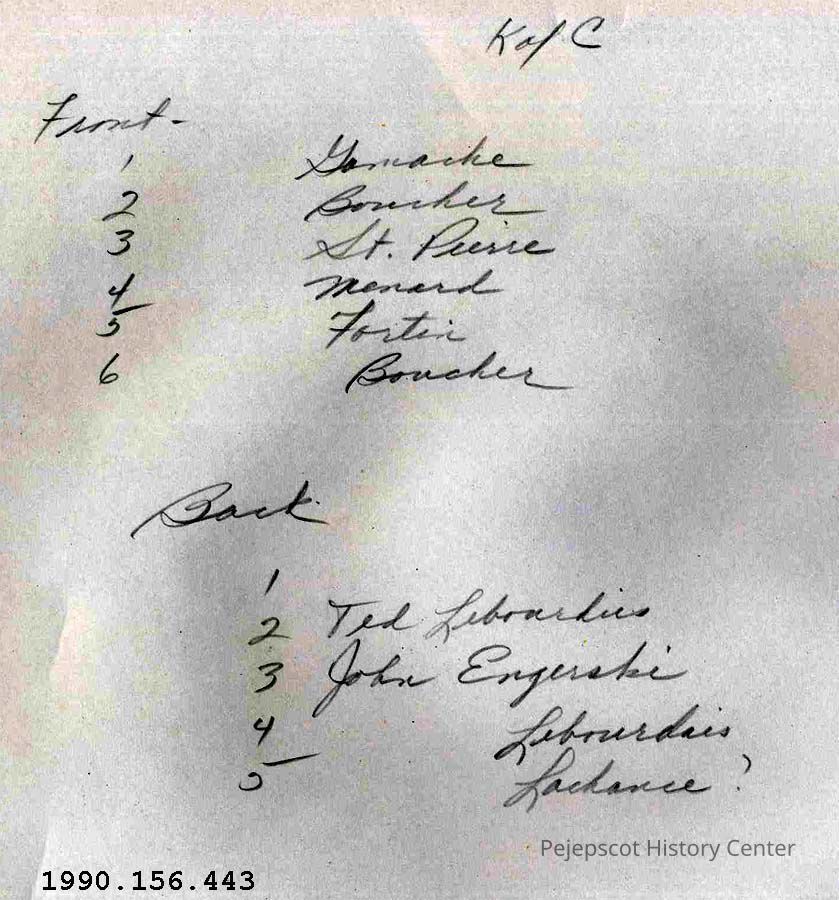 K of C
Front-
1 Gamache
2 Boucher
3 St. Pierre
4 Menard
5 Fortin
6 Boucher
Back
1
2 Ted Lebourdais
3 John Engerski
4 Lebourdais
5 Lachance ?
Pejepscot History Center
1990.156.443